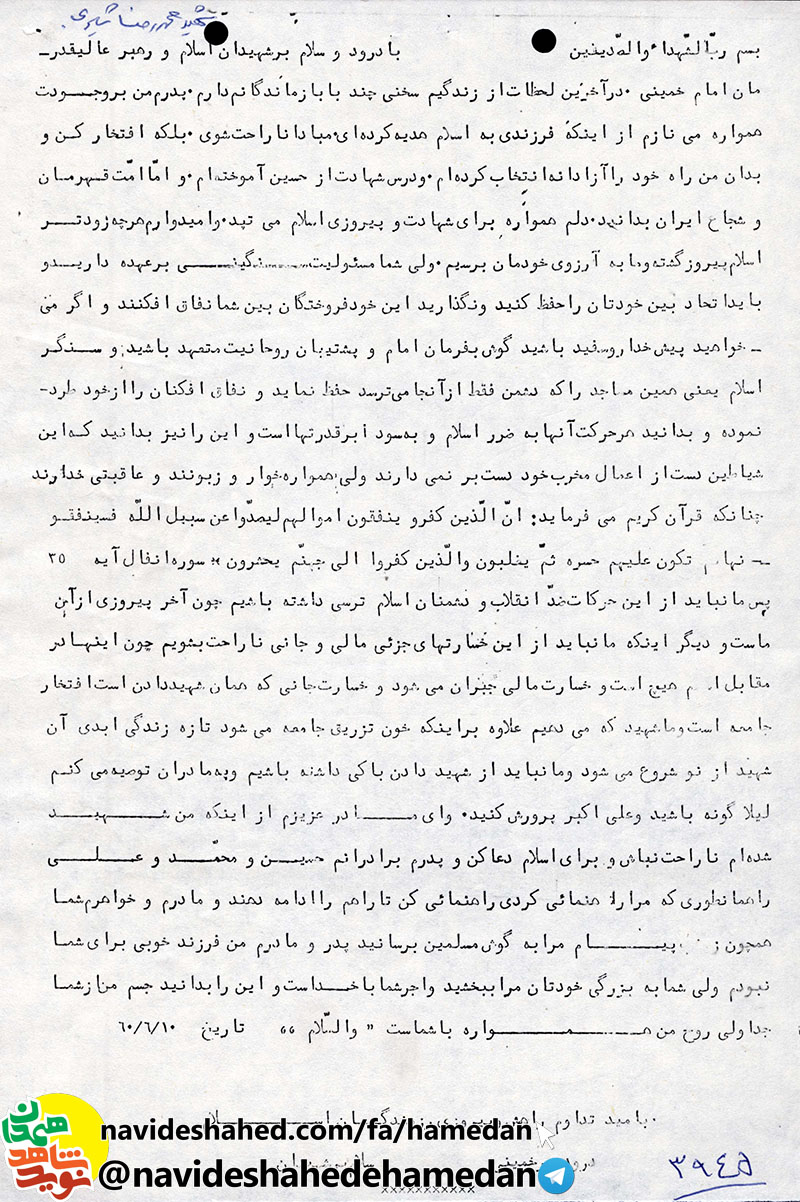 شهید محمدرضا
بسم ربّ الشهداء والصّدیقین با درود و سلام بر شهیدان اسلام و رهبر عالیقدر ـ
مان امام خمینی ۰ در آخرین لحظات از زندگیم سخنی چند با بازماندگانم دارم ۰ پدرم من بر وجودت
همواره می نازم از اینکه فرزندی به اسلام هدیه کرده ای ۰ مبادا ناراحت شوی ۰ بلکه افتخار کن و
بدان من راه خود را آزادانه انتخاب کرده ام ۰ ودرس شهادت از حسین آموخته ام ۰ و امّا امّت قهرمان
و شجاع ایران بدانید ۰ دلم همواره برای شهادت و پیروزی اسلام می تپد ۰ وامیدوارم هرچه زودتر
اسلام پیروز گشته وما به آرزوی خودمان برسیم ۰ ولی شما مسئولیت سنگینی بر عهده دارید و
باید اتحاد بین خودتان را حفظ کنید ونگذارید این خودفروختگان بین شما نفاق افکنند و اگر می
ـ خواهید پیش خدا روسفید باشید گوش بفرمان امام و پشتیبان روحانیت متعهد باشید و سنگر
اسلام یعنی همین مساجد را که دشمن فقط از آنجا می ترسد حفظ نماید و نفاق افکنان را از خود طرد ـ
نموده و بدانید هر حرکت آنها به ضرر اسلام و به سود ابرقدرتها است و این را نیز بدانید که این
شیاطین دست از اعمال مخرب خود دست بر نمی دارند ولی همواره خوار و زبونند و عاقبتی خدارند
چنانکه قرآن کریم می فرماید: انّ الّذین کفرو ینفقون اموالهم لیصدّوا عن سبیل اللّه فسینفقو
ـ نها تکون علیهم حسره ثمّ یغلبون والّذین کفروا الی جهنّم یحشرون » سوره انفال آیه ۳۵
پس ما نباید از این حرکات ضدّ انقلاب و دشمنان اسلام ترسی داشته باشیم چون آخر پیروزی از آن
ماست و دیگر اینکه ما نباید از این خسارتهای جزئی مالی و جانی ناراحت بشویم چون اینها در
مقابل اسلام هیچ است و خسارت مالی جبران می شود و خسارت جانی که همان شهید دادن است افتخار
جامعه است وما شهید که می دهیم علاوه بر اینکه خون تزریق جامعه می شود تازه زندگی ابدی آن
شهید از نو شروع می شود وما نباید از شهید دادن باکی داشته باشیم وبه مادران توصیه می کنم
لیلا گونه باشید وعلی اکبر پرورش کنید ۰ وای مادر عزیزم از اینکه من شهید
شده ام ناراحت نباش و برای اسلام دعا کن و پدرم برادرانم حسین و محمّد و علی
را همانطوری که مرا راهنمائی کردی راهنمائی کن تا راهم را ادامه دهند و مادرم و خواهرم شما
همچون پیام مرا به گوش مسلمین برسانید پدر و مادرم من فرزند خوبی برای شما
نبودم ولی شما به بزرگی خودتان مرا ببخشید واجر شما با خداست و این را بدانید جسم من از شما
جدا ولی روح من همواره با شماست " والسّلام " تاریخ ۶۰/۶/۱۰
بامید تداوم
درود خمینی
xxxxxxxxxxx
۳۹۴۵
نوید شاهد همدان
navideshahed.com/fa/hamedan
@navideshahedehamedan